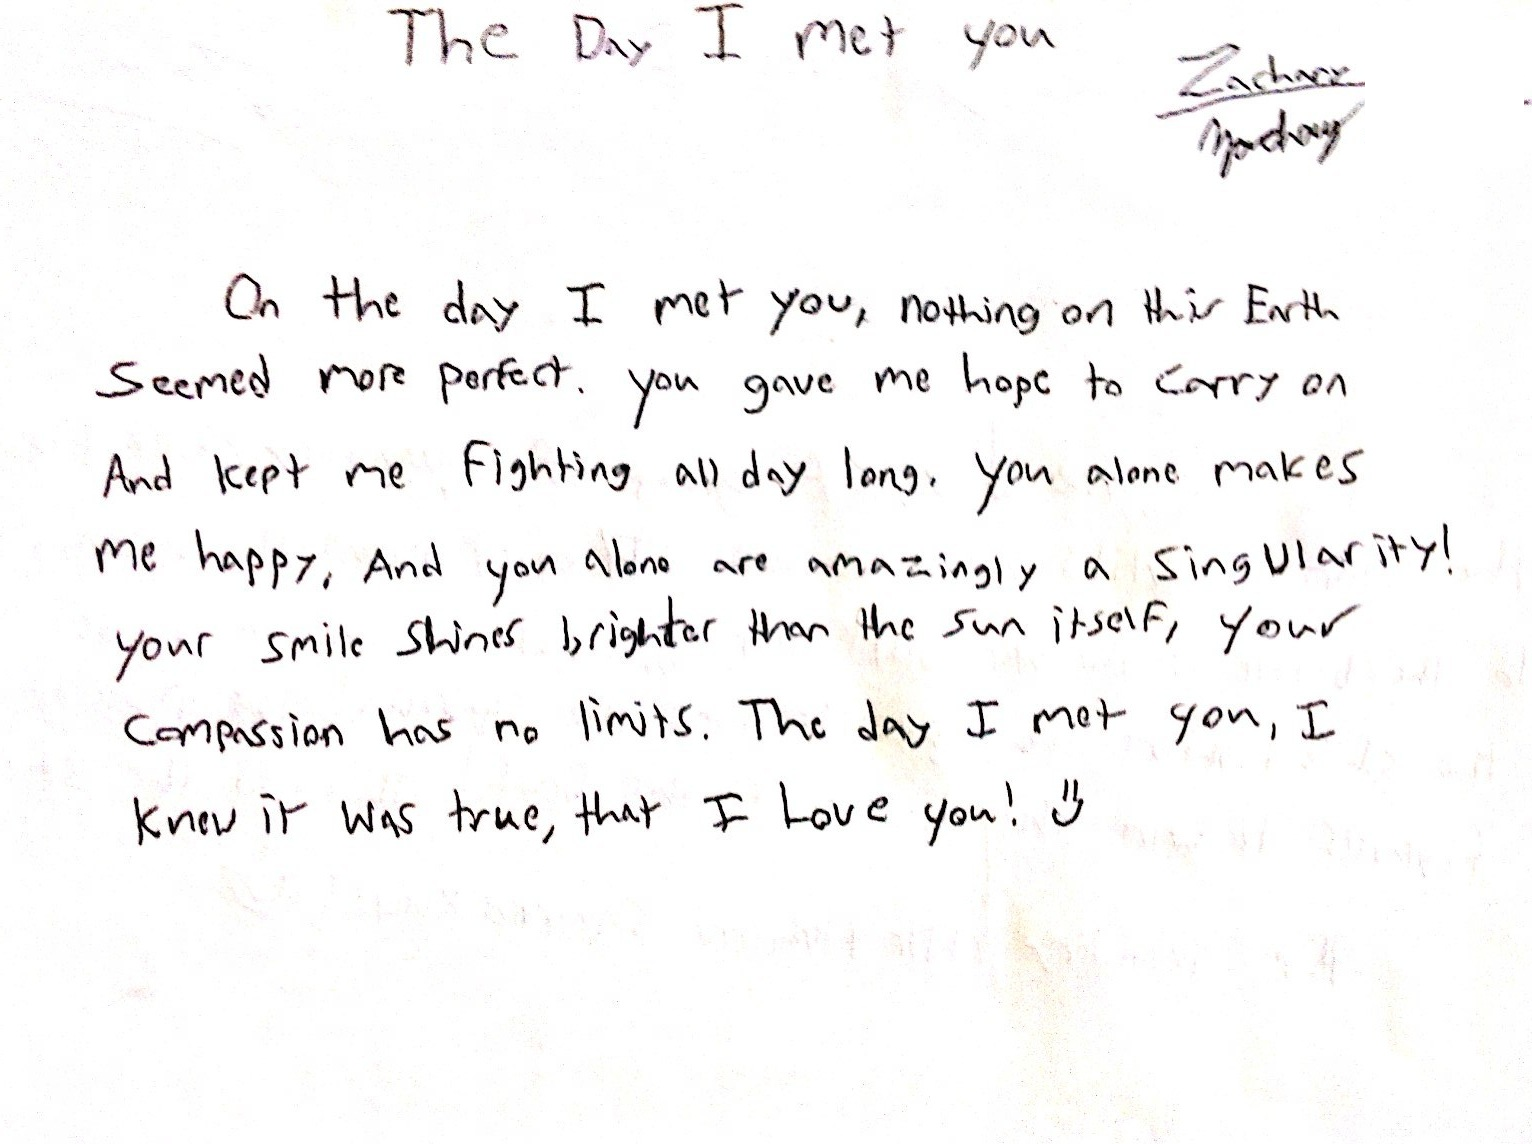 The Day I met you
Zachary
On the day I met you, nothing on this Earth
Seemed more perfect. you gave me hope to carry on
And kept me Fighting all day long. you alone makes
me happy, And you alone are amazingly a singularity!
your smile shines brighter than the sun itself, your
compassion has no limits. The day I met you, I
knew it was true, that I Love you!